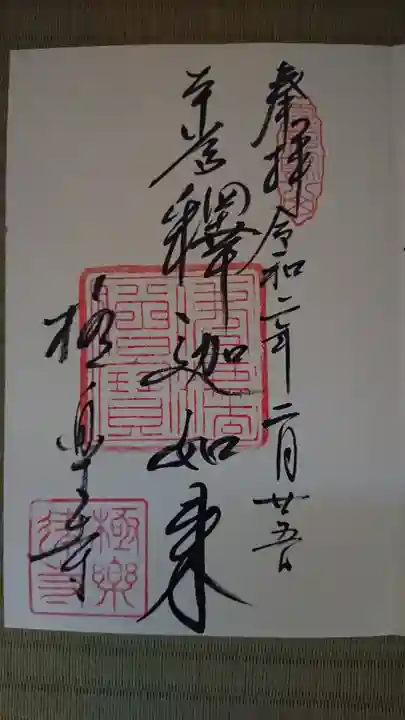 奉拝 令和二年二月廿五日
本尊釋迦如来
極楽寺